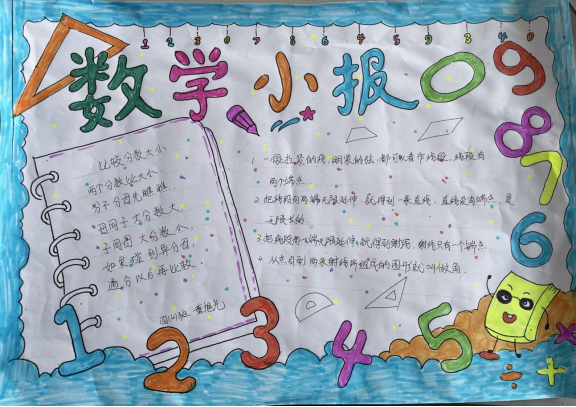 数学小报
1 2 3 0 7 8 6 4 5 9 3 4 0
比较分数大小
两个分数比大小
分子分母先瞧瞧.
母同子大分数大
子同母大分数小.
如果碰到异分母.
通分以后再比较.
四(4)班
1. 一根拉紧的线,绷紧的弦,都可以看作线段,线段有
两个端点.
2. 把线段向两端无限延伸,就得到一条直线,直线没有端点,是
无限长的.
3. 把线段向一端无限延伸,就得到射线,射线只有一个端点.
4. 从一点引到两条射线所组成的图形就叫做角.
0
9
8
7
6
5
4
3
2
1
×
÷
+